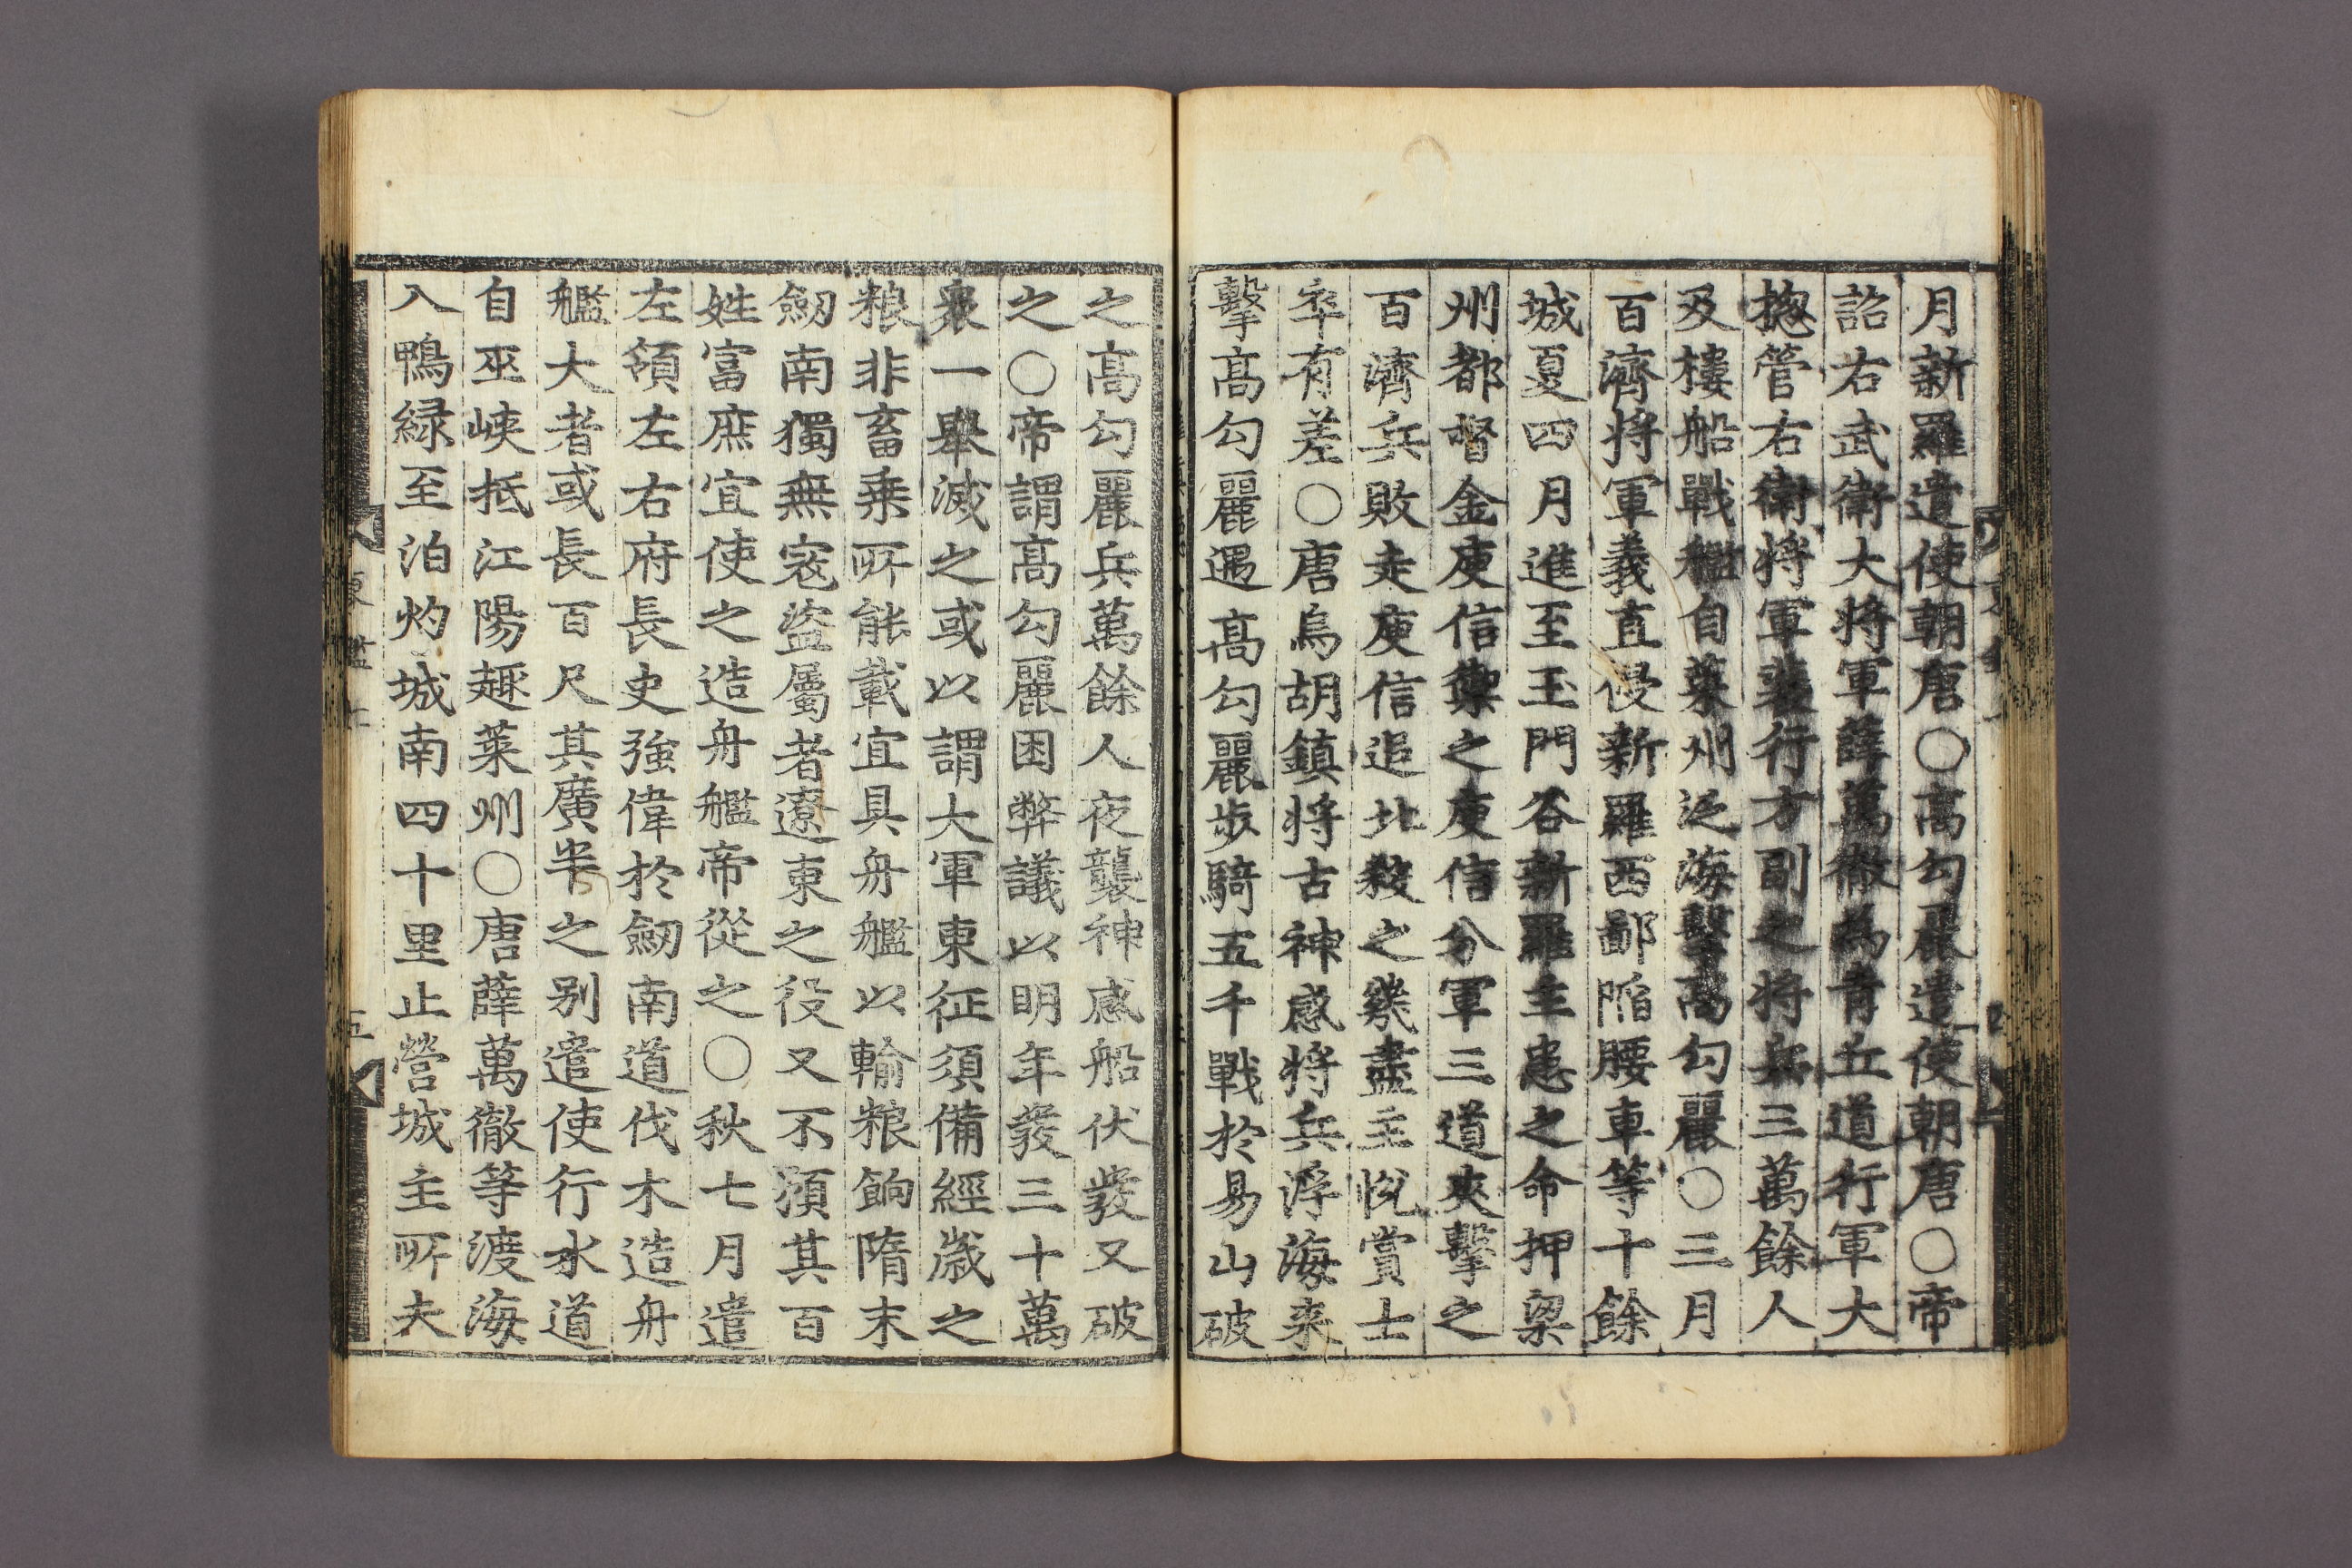 月新羅遣使朝唐〇高勾麗遣使朝唐〇帝
詔右武衛大將軍薛萬徹爲靑丘道行軍大
摠管右衛將軍裴行方副之將兵三萬餘人
及樓船戰艦自萊州泛海擊高勾麗〇三月
百濟將軍義直侵新羅西鄙陷腰車等十餘
城夏四月進至玉門谷新羅主患之命押梁
州都督金庾信禦之庾信分軍三道夾擊之
百濟兵敗走庾信追北殺之幾盡主悅賞士
卒有差〇唐烏胡鎭將古神感將兵浮海來
擊高勾麗遇高勾麗步騎五千戰於易山破
之高勾麗兵萬餘人夜襲神感船伏發又破
之〇帝謂高勾麗困弊議以明年發三十萬
衆一舉滅之或以謂大軍東征須備經歲之
粮非畜乗所能載宜具舟艦以輸粮餉隋末
劒南獨無寇盜屬者遼東之役又不須其百
姓富庶宜使之造舟艦帝從之〇秋七月遣
左領左右府長史強偉於劒南道伐木造舟
艦大者或長百尺其廣半之別遣使行水道
自巫峽抵江陽趣萊州〇唐薛萬徹等渡海
入鴨緑至泊灼城南四十里止營城主所夫